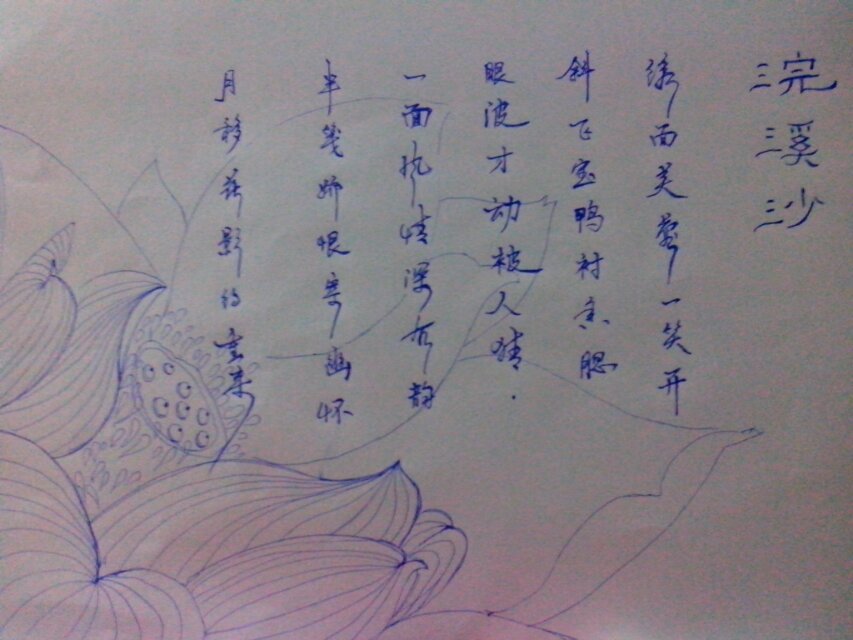 浣溪沙
绣面芙蓉一笑开
斜飞宝鸭衬香腮
眼波才动被人猜.
一面风情深有韵
半笺娇恨寄幽怀
月移花影约重来